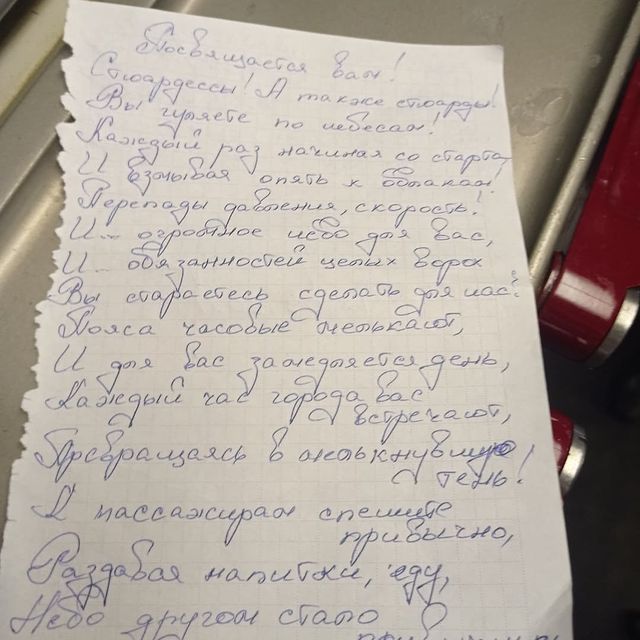 Посвящается вам!
Стюардессы! А также стюарды!
Вы гуляете по небесам!
Каждый раз начиная со старта,
И взмывая опять к облакам!
Перепады давления, скорость!
И... огромное небо для вас,
И... обязанностей целых ворох
Вы стараетесь сделать для нас!
Пояса часовые мелькают,
И для вас замедляется день,
Каждый час города вас
встречают,
Превращаясь в мелькнувшую
тень!
К пассажирам спешите
привычно,
Раздавая напитки, еду,
Небо другом стало